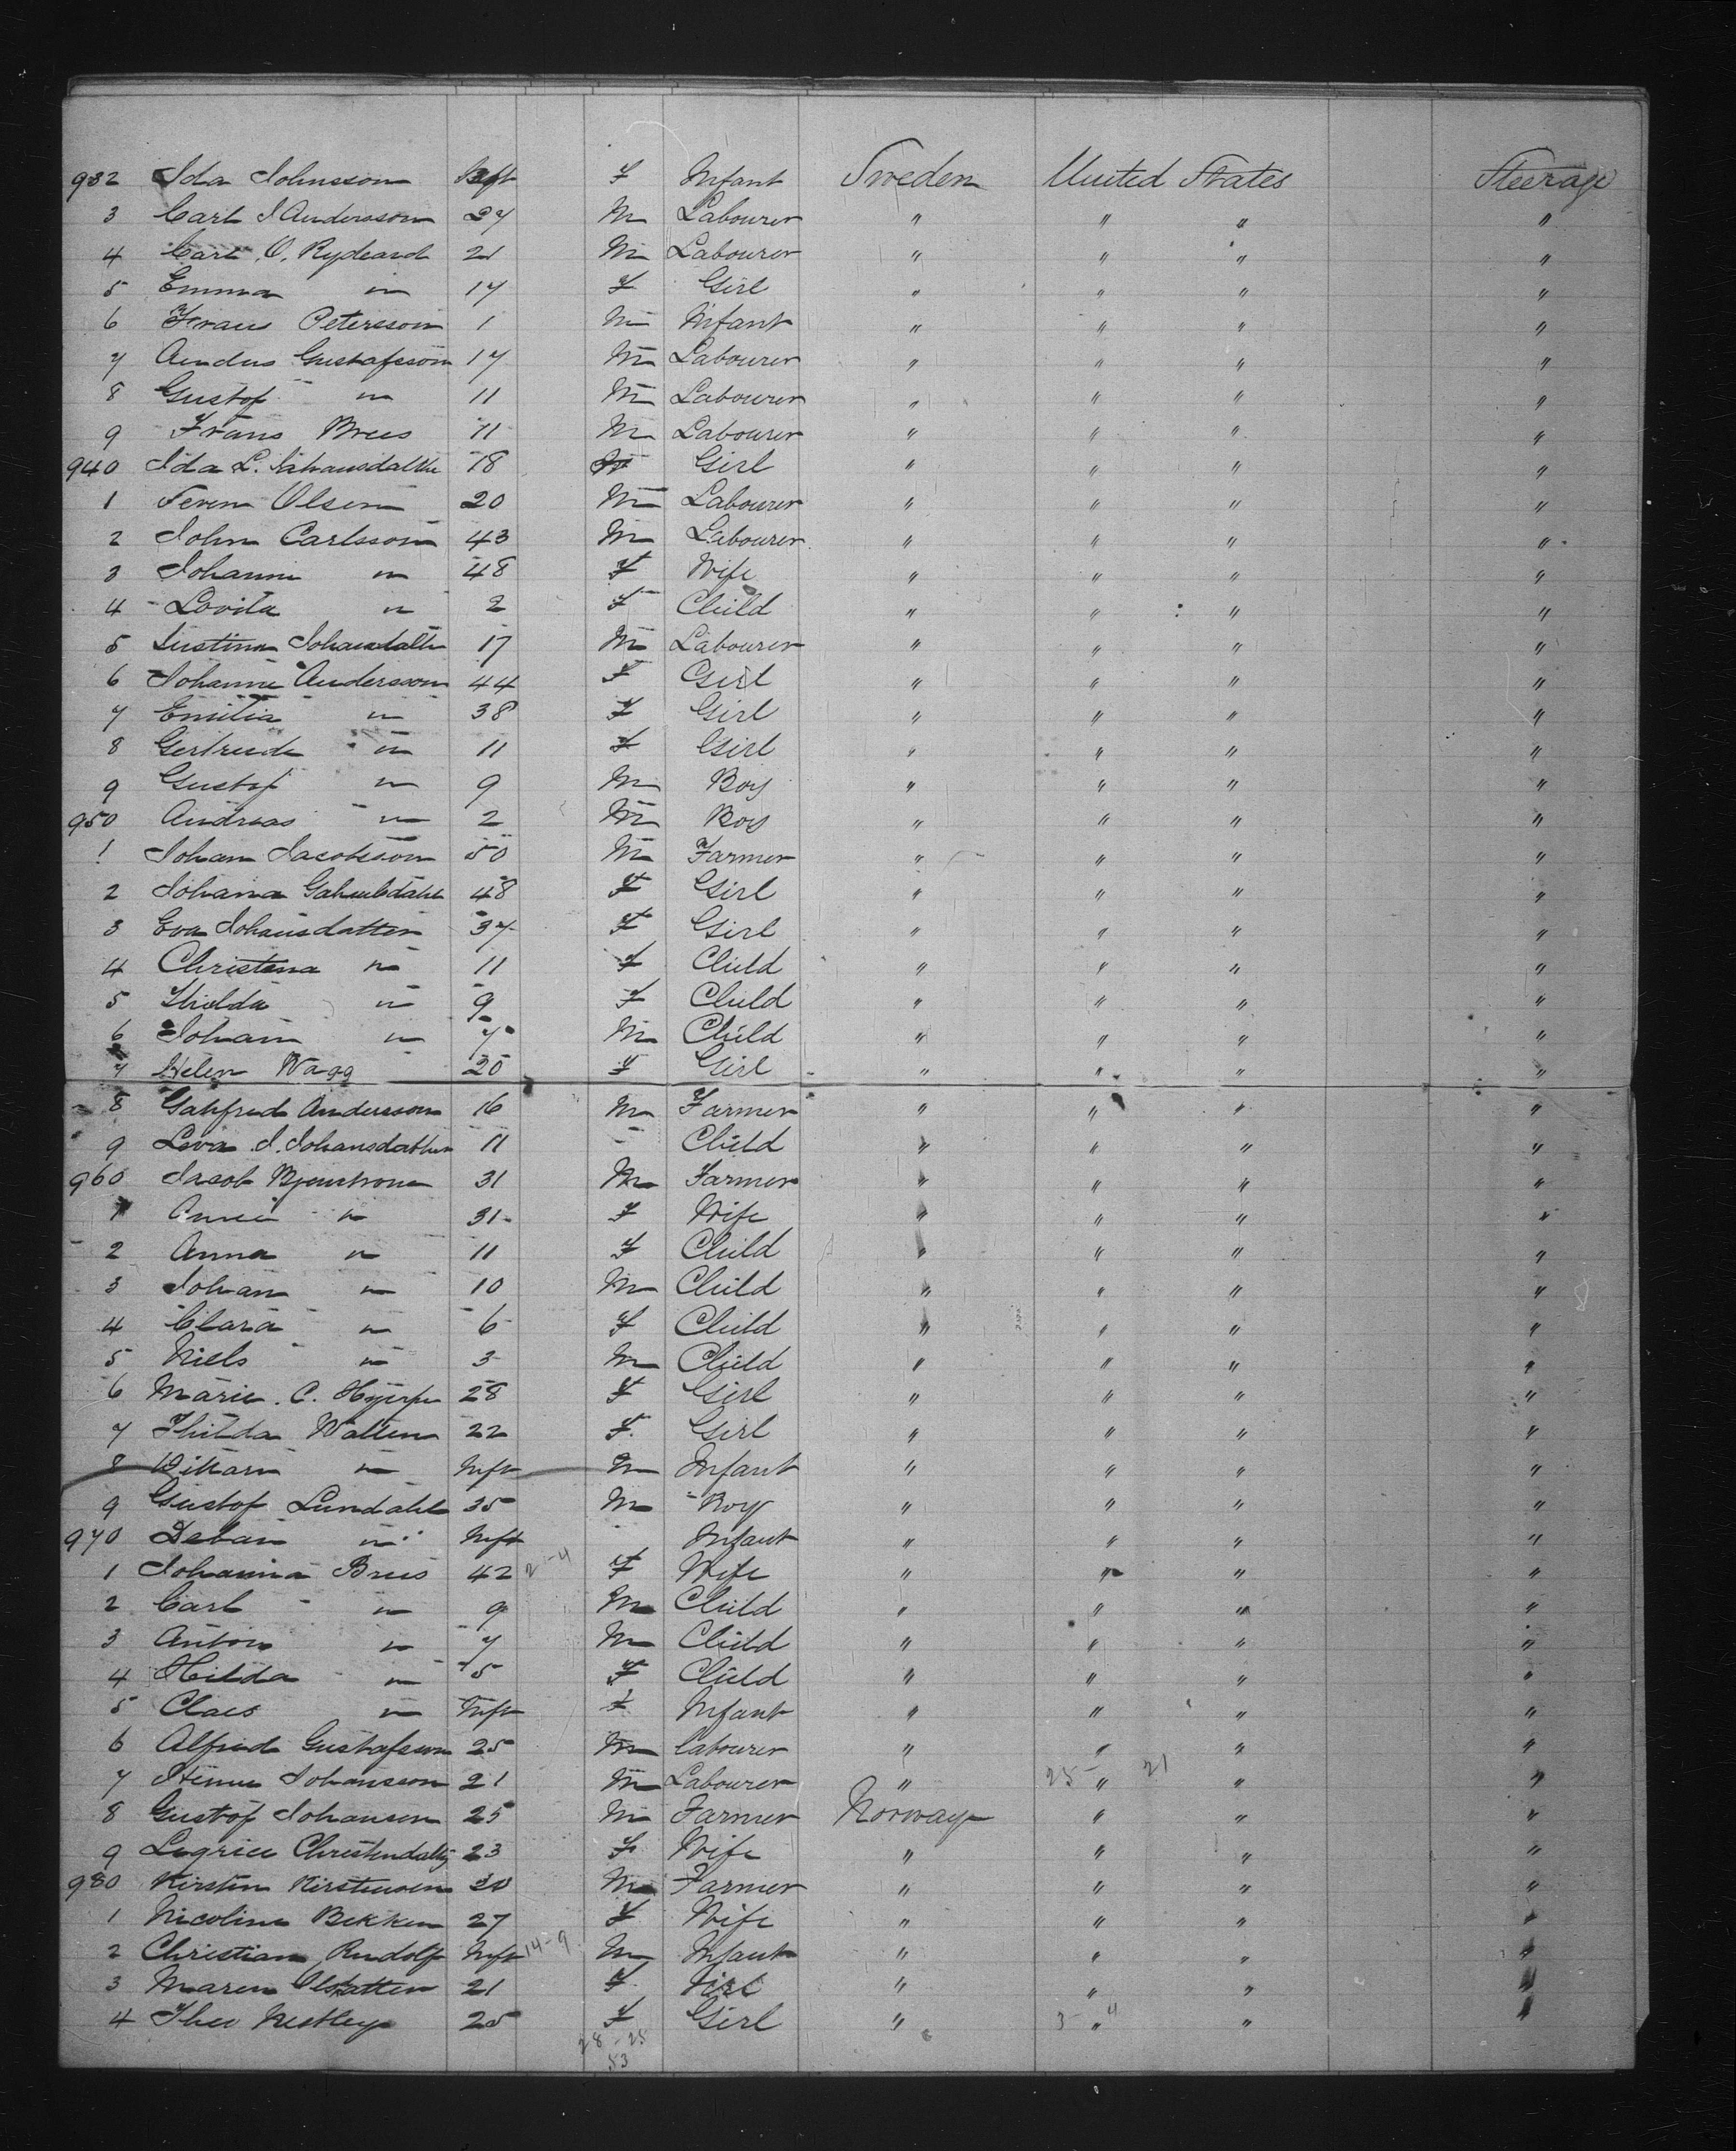 932 Ida Johnsson Inft F Infant Sweden United States Steerage
3 Carl J Andersson 27 M Labourer " " " "
4 Carl O. Rydeand 21 M Labourer " " " "
5 Emma " 17 F Girl " " " "
6 Frans Petersson 1 M Infant " " " "
7 Andus Gustafsson 17 M Labourer " " " "
8 Gustof " 11 M Labourer " " " "
9 Frans Brus 11 M Labourer " " " "
940 Ida L. 18 Girl " " " "
1 Olsen 20 M Labourer " " " "
2 John Carlsson 43 M Labourer " " " "
3 Johanni " 48 F Wife " " " "
4 Lovita " 2 F Child " " " "
5 Justina 17 M Labourer " " " "
6 Johanni Andersson 44 F Girl " " " "
7 Emilia " 38 F Girl " " " "
8 Gertrude " 11 F Girl " " " "
9 Gustof " 9 M Boy " " " "
950 Andreas " 2 M Boy " " " "
1 Johan Jacobsson 50 M Farmer " " " "
2 Johana 48 F Girl " " " "
3 Eva Johansdatter 37 F Girl " " " "
4 Christena " 11 F Child " " " "
5 " 9 F Child " " " "
6 Johan " 7 M Child " " " "
7 Helen Wagg 20 F Girl " " " "
8 Andersson 16 M Farmer " " " "
9 J. Johansdatter 11 Child " " " "
960 Jacob 31 M Farmer " " " "
1 " 31 F Wife " " " "
2 Anna " 11 F Child " " " "
3 Johan " 10 M Child " " " "
4 Clara " 6 F Child " " " "
5 Niels " 3 M Child " " " "
6 Marie C. 28 F Girl " " " "
7 Wallin 22 F Girl " " " "
8 " Inft M Infant " " " "
9 Gustof Lundahl 35 M Boy " " " "
970 " Inft Infant " " " "
1 Johanna Brus 42 2-4 F Wife " " " "
2 Carl " 9 M Child " " " "
3 Anton " 7 M Child " " " "
4 Hilda " 5 F Child " " " "
5 Claes " Inft F Infant " " " "
6 Alfred Gustafsson 25 M labourer " " " "
7 Johansson 21 M Labourer " 25 " 21 " "
8 Gustof Johansen 25 M Farmer Norway " " "
9 23 F Wife " " " "
980 Kirsten Kirstensen 30 M Farmer " " " "
1 Nicoline Bekken 27 F Wife " " " "
2 Christian Rudolf Inft 14-9 M Infant " " " "
3 Maren Olsdatter 21 F Girl " " " "
4 25 F Girl " 3 " 4 " "
28-25
53